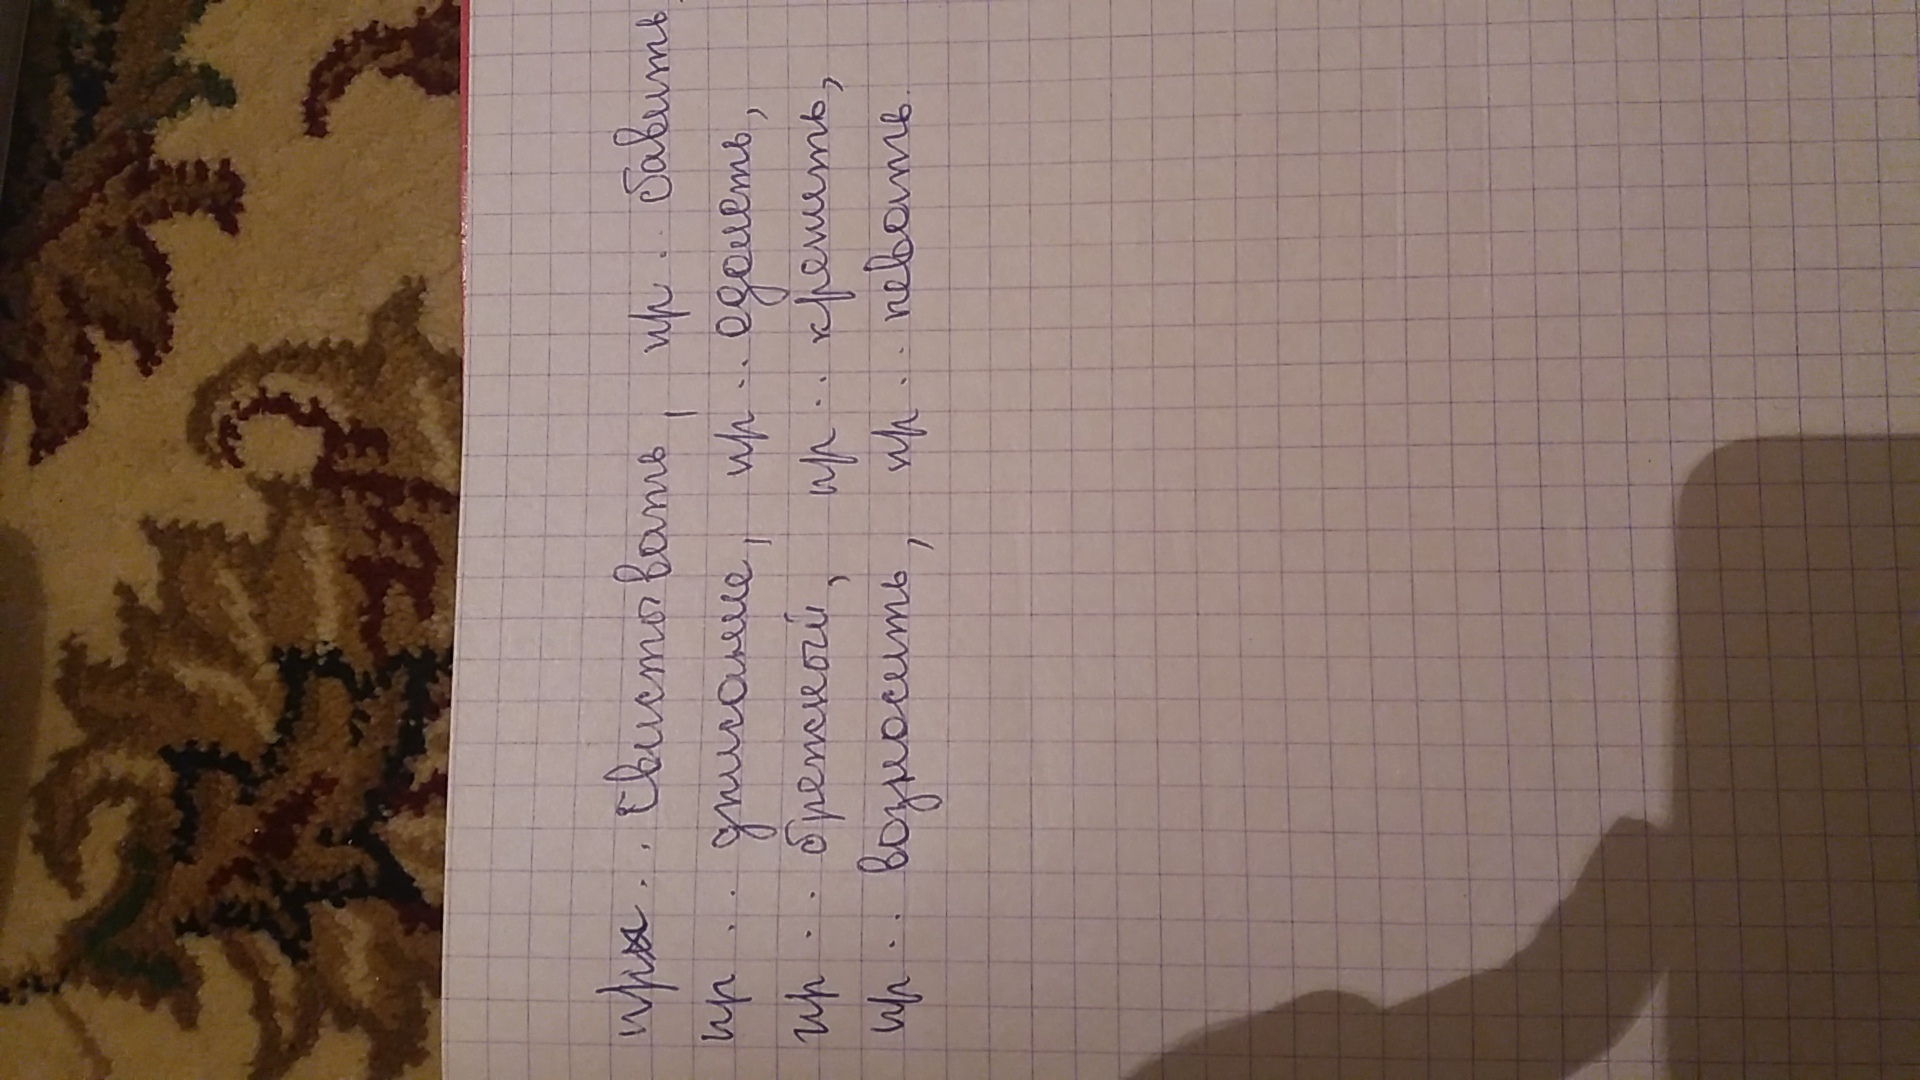 пр.. свистывать, пр.. бавить,
пр.. дписание, пр.. одолеть,
пр.. брежный, пр.. крепить,
пр.. возносить, пр.. певать.